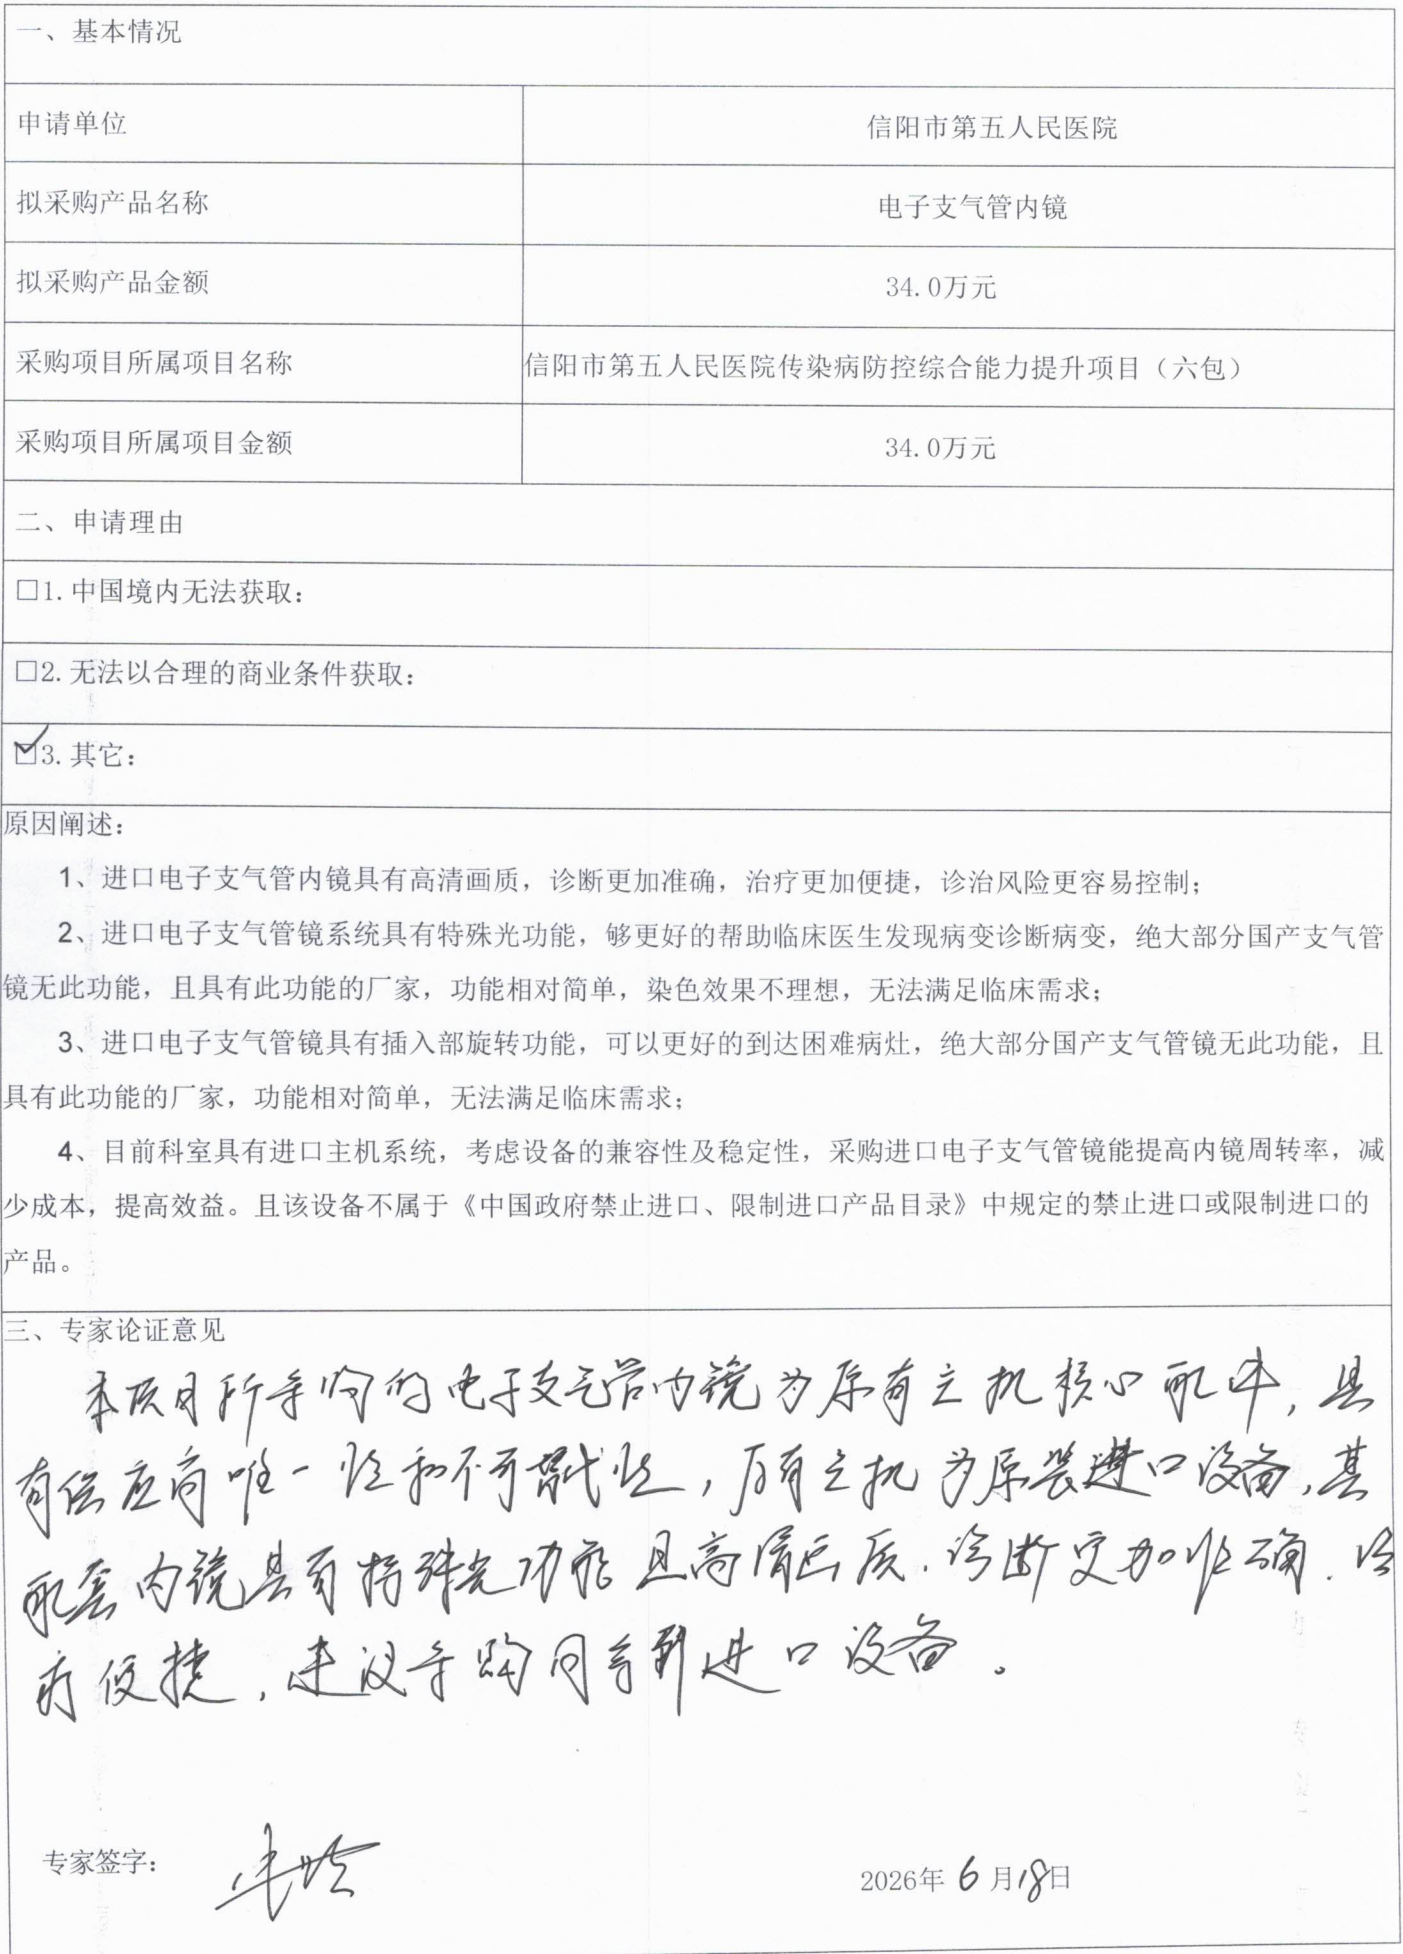 一、基本情况
申请单位 信阳市第五人民医院
拟采购产品名称 电子支气管内镜
拟采购产品金额 34.0万元
采购项目所属项目名称 信阳市第五人民医院传染病防控综合能力提升项目（六包）
采购项目所属项目金额 34.0万元
二、申请理由
☐1.中国境内无法获取：
☐2.无法以合理的商业条件获取：
☑3.其它：
原因阐述：
1、进口电子支气管内镜具有高清画质，诊断更加准确，治疗更加便捷，诊治风险更容易控制；
2、进口电子支气管镜系统具有特殊光功能，够更好的帮助临床医生发现病变诊断病变，绝大部分国产支气管
镜无此功能，且具有此功能的厂家，功能相对简单，染色效果不理想，无法满足临床需求；
3、进口电子支气管镜具有插入部旋转功能，可以更好的到达困难病灶，绝大部分国产支气管镜无此功能，且
具有此功能的厂家，功能相对简单，无法满足临床需求；
4、目前科室具有进口主机系统，考虑设备的兼容性及稳定性，采购进口电子支气管镜能提高内镜周转率，减
少成本，提高效益。且该设备不属于《中国政府禁止进口、限制进口产品目录》中规定的禁止进口或限制进口的
产品。
三、专家论证意见
本项目所采购的电子支气管内镜为原有主机核心配件，具
有供应商唯一性和不可替代性，原有主机为原装进口设备，其
配套内镜具有特殊光功能且高清画质．诊断更加准确．治
疗便捷，建议采购同系列进口设备。
专家签字：
2026年6月18日